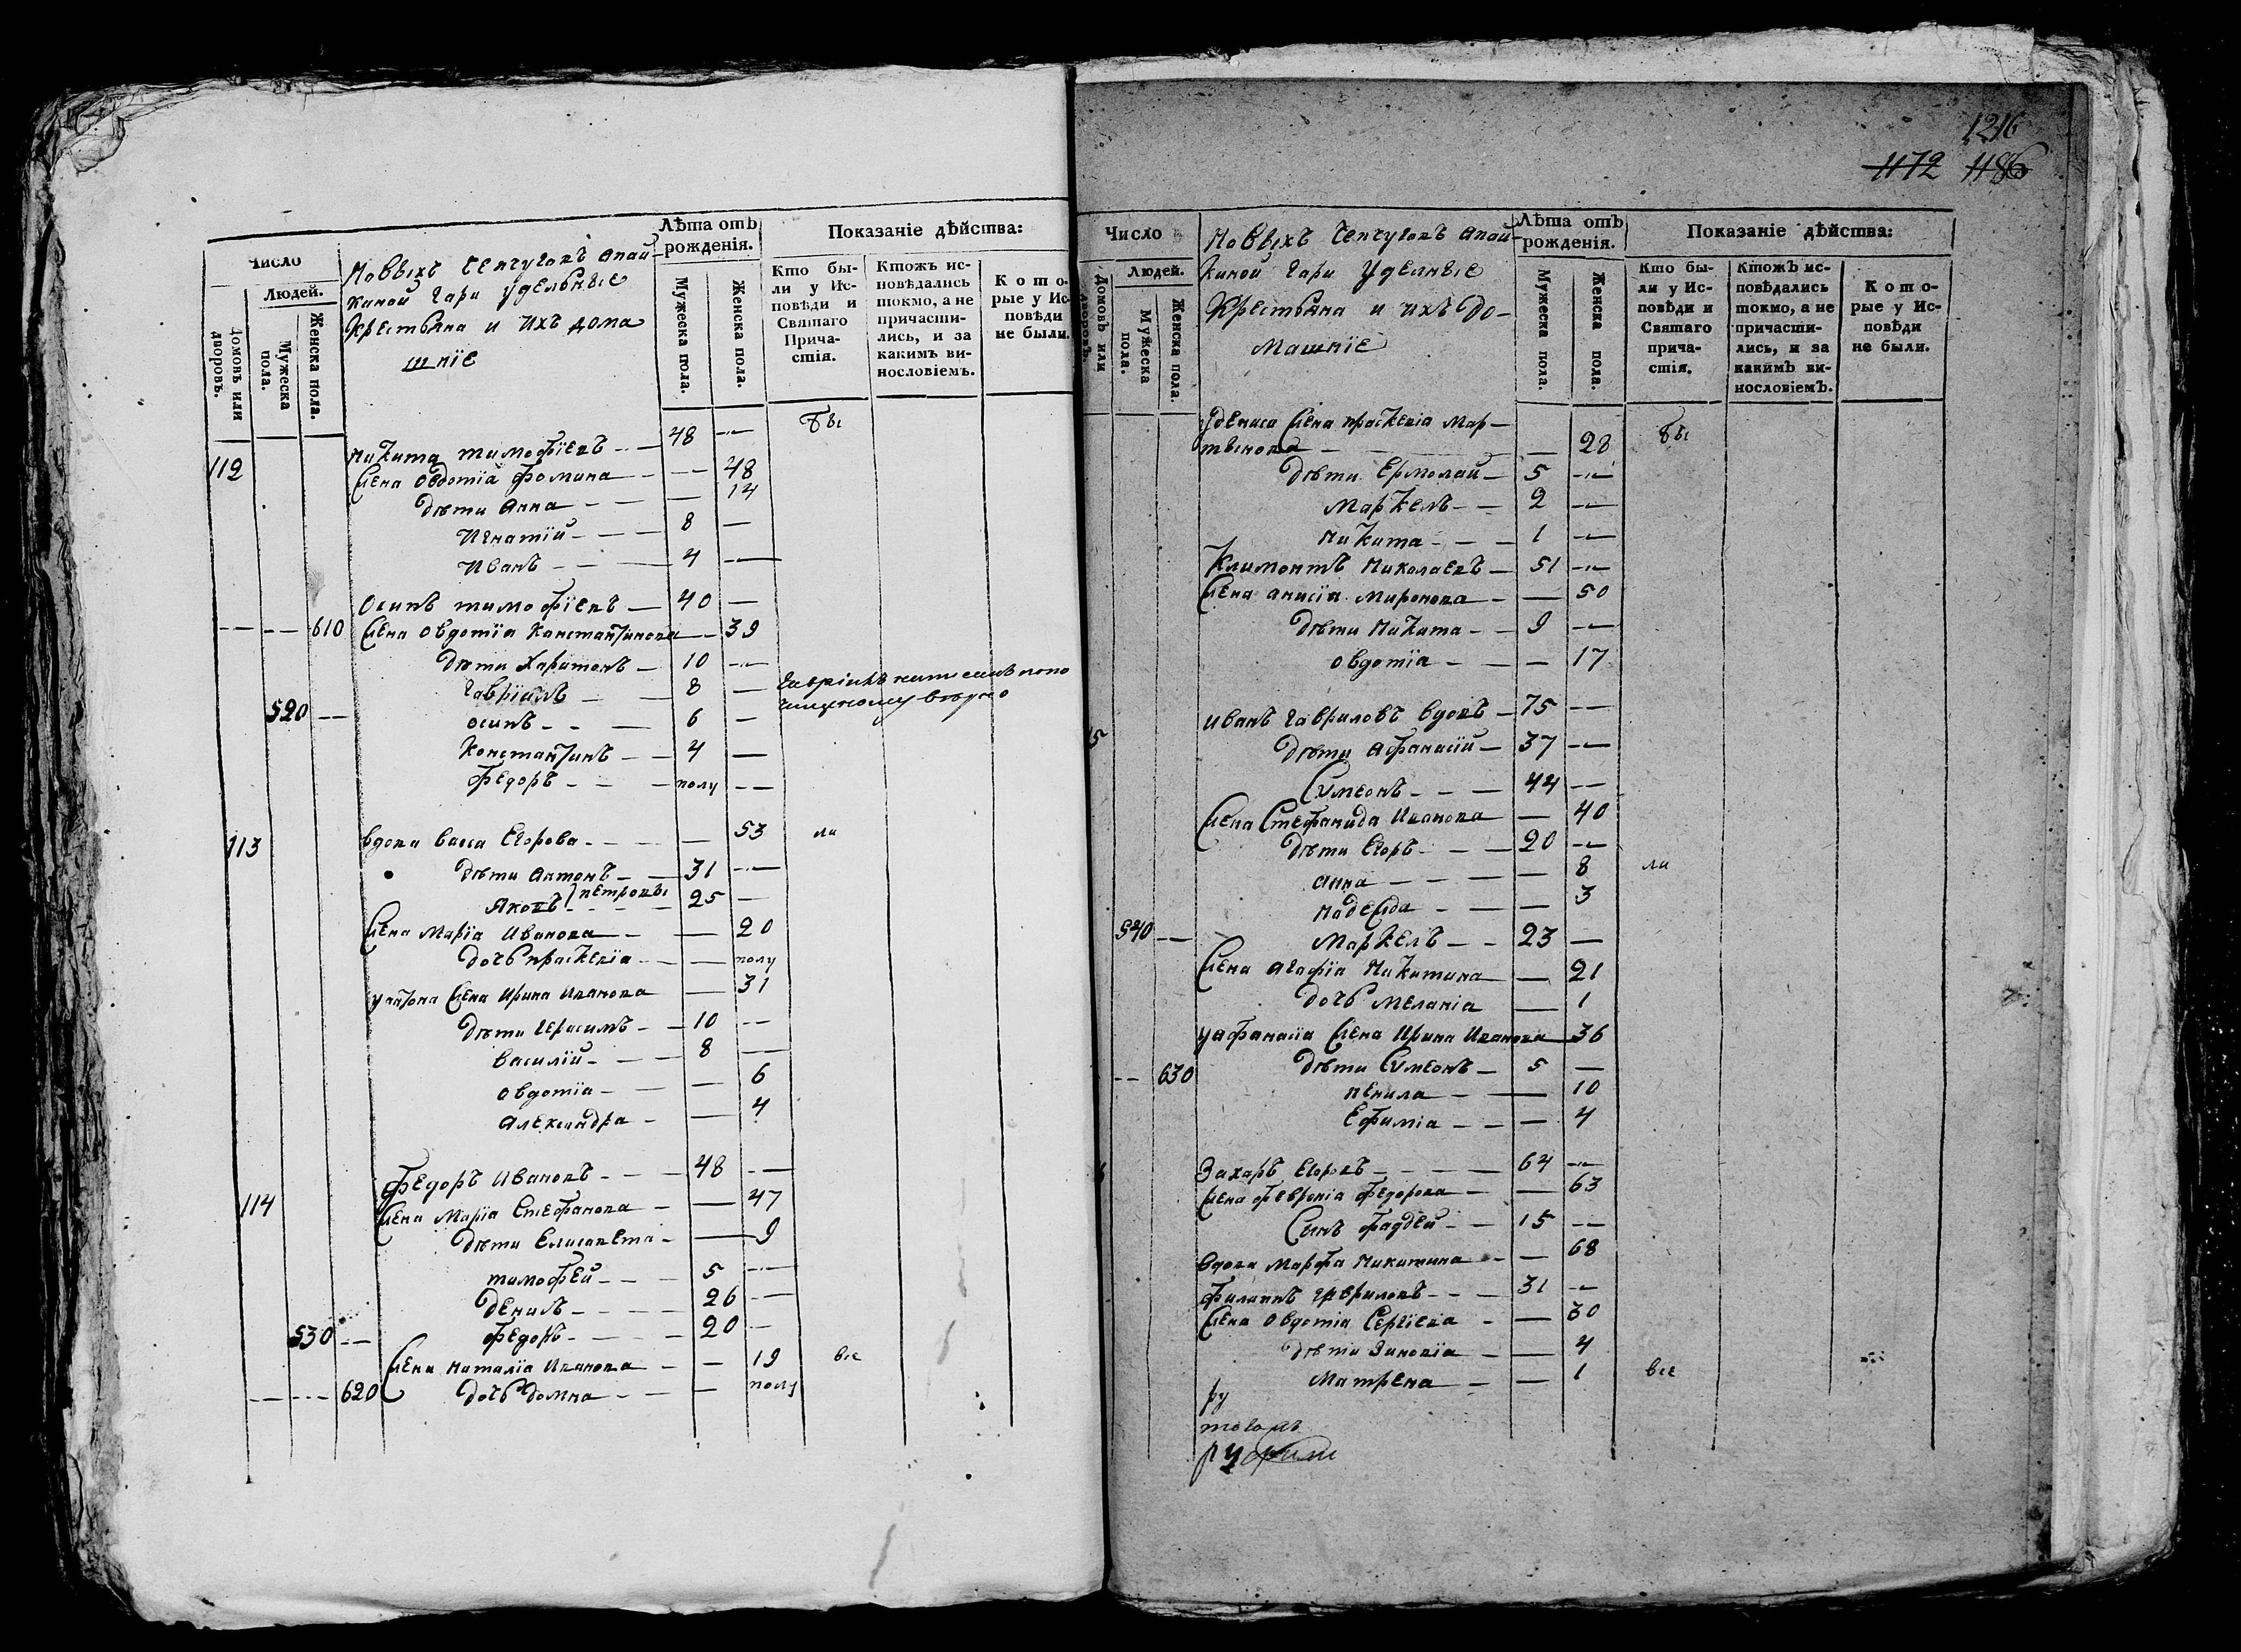 Число
Людей.
Домовъ или дворовъ.
Мужеска пола.
Женска пола.
Новыхъ Чепчуговъ апай-
киной гари удельные
Крестьяна и ихъ дома
шніе
Лѣта отъ рожденія.
Мужеска пола.
Женска пола.
Показаніе дѣйства:
Кто были у Исповѣди и Святаго Причастія.
Ктожъ исповѣдались токмо, а не причастились, и за какимъ винословіемъ.
Которые у Исповѣди не были.
112 Никита тимофіевъ 48 бы
Жена овдотіа фомина 48
дѣти анна 14
Игнатій 8
Иванъ 4
Осипъ тимофіевъ 40
610 Жена овдотіа Константинова 39
дѣти Харитонъ 10
гавріилъ 8
520 осипъ 6
Константинъ 4
федоръ полу
113 вдова васса Егорова 53 ли
дѣти антонъ 31
Яковъ петровы 25
Жена Маріа Иванова 20
дочь праскевіа полу
у антона Жена Ирина Иванова 31
дѣти герасимъ 10
василій 8
овдотіа 6
александра 4
114 федоръ Ивановъ 48
Жена Маріа Стефанова 47
дѣти Елисавета 9
тимофей 5
денисъ 26
530 федоръ 20
Жена наталіа Иванова 19 все
620 дочь домна полу
1216
1172 1186
Число
Людей.
Домовъ или дворовъ.
Мужеска пола.
Женска пола.
Новыхъ Чепчуговъ апай-
киной гари Уделные
Крестьяна и ихъ до-
машніе
Лѣта отъ рожденія.
Мужеска пола.
Женска пола.
Показаніе дѣйства:
Кто были у Исповѣди и Святаго причастія.
Ктожъ исповѣдались токмо, а не причастились, и за какимъ винословіемъ.
Которые у Исповѣди не были.
У дениса Жена праскевіа Мар-
тынова 28 бы
дѣти Ермолай 5
Маркелъ 2
Никита 1
Климонтъ Николаевъ 51
Жена анисіа Миронова 50
дѣти Никита 9
овдотіа 17
5 Иванъ гавриловъ вдовъ 75
дѣти афанасій 37
Сѵмеонъ 44
Жена Стефанида Иванова 40
дѣти Егоръ 20
анна 8 ли
надежда 3
540 Маркелъ 23
Жена агафіа Никитина 21
дочь меланіа 1
у афанасіа Жена Ирина Иванова 36
630 дѣти Сѵмеонъ 5
ненила 10
Ефиміа 4
Захаръ Егоровъ 64
Жена февроніа федорова 63
Сынъ фаддей 15
вдова Марфа Никитина 68
филиппъ гавриловъ 31
Жена овдотіа Сергіева 30
дѣти Зиновіа 4
Матрена 1 все
ру